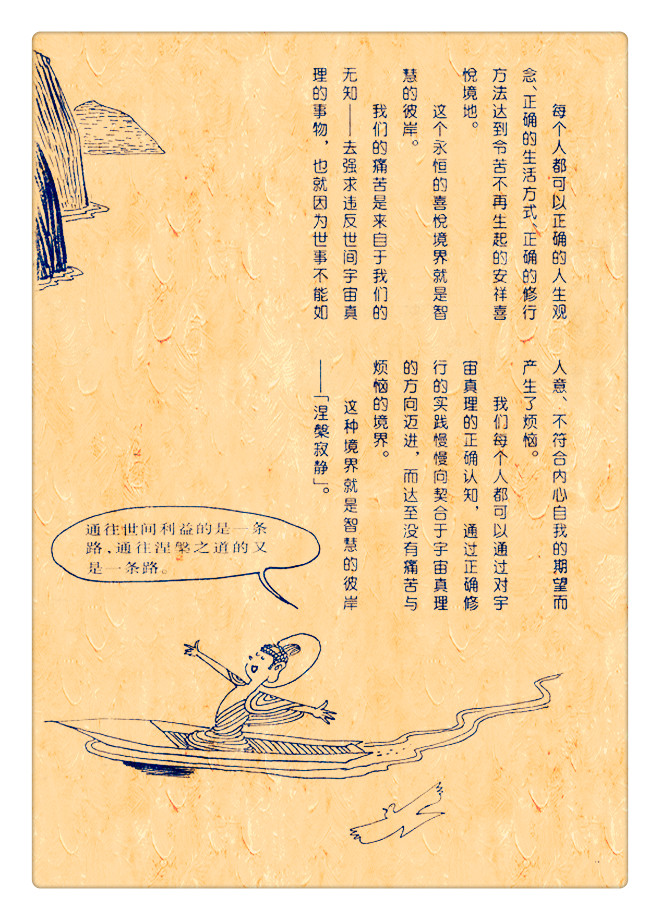 每个人都可以正确的人生观
念、正确的生活方式、正确的修行
方法达到令苦不再生起的安祥喜
悦境地。
这个永恒的喜悦境界就是智
慧的彼岸。
我们的痛苦是来自于我们的
无知——去强求违反世间宇宙真
理的事物，也就因为世事不能如
人意、不符合内心自我的期望而
产生了烦恼。
我们每个人都可以通过对宇
宙真理的正确认知，通过正确修
行的实践慢慢向契合于宇宙真理
的方向迈进，而达至没有痛苦与
烦恼的境界。
这种境界就是智慧的彼岸
——「涅槃寂静」。
通往世间利益的是一条
路，通往涅槃之道的又
是一条路。